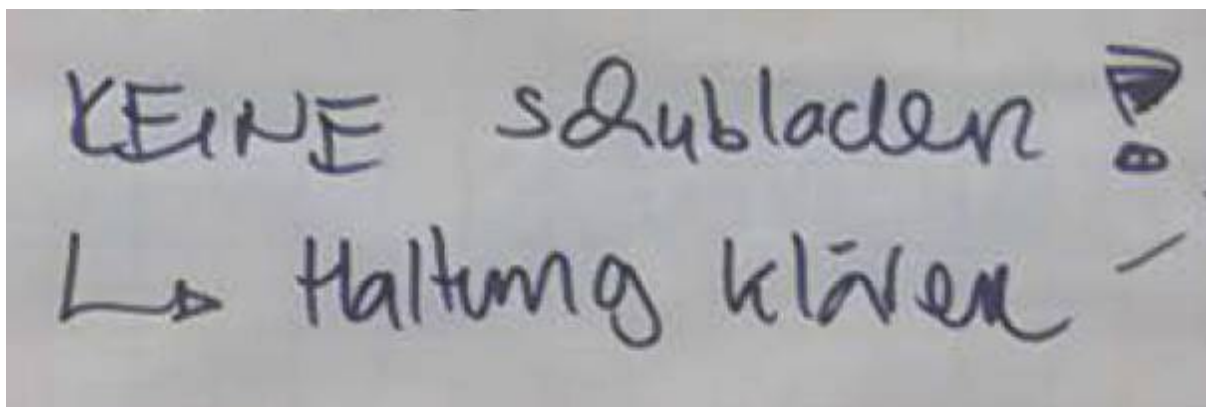 KEINE Schubladen!
↳ Haltung klären –